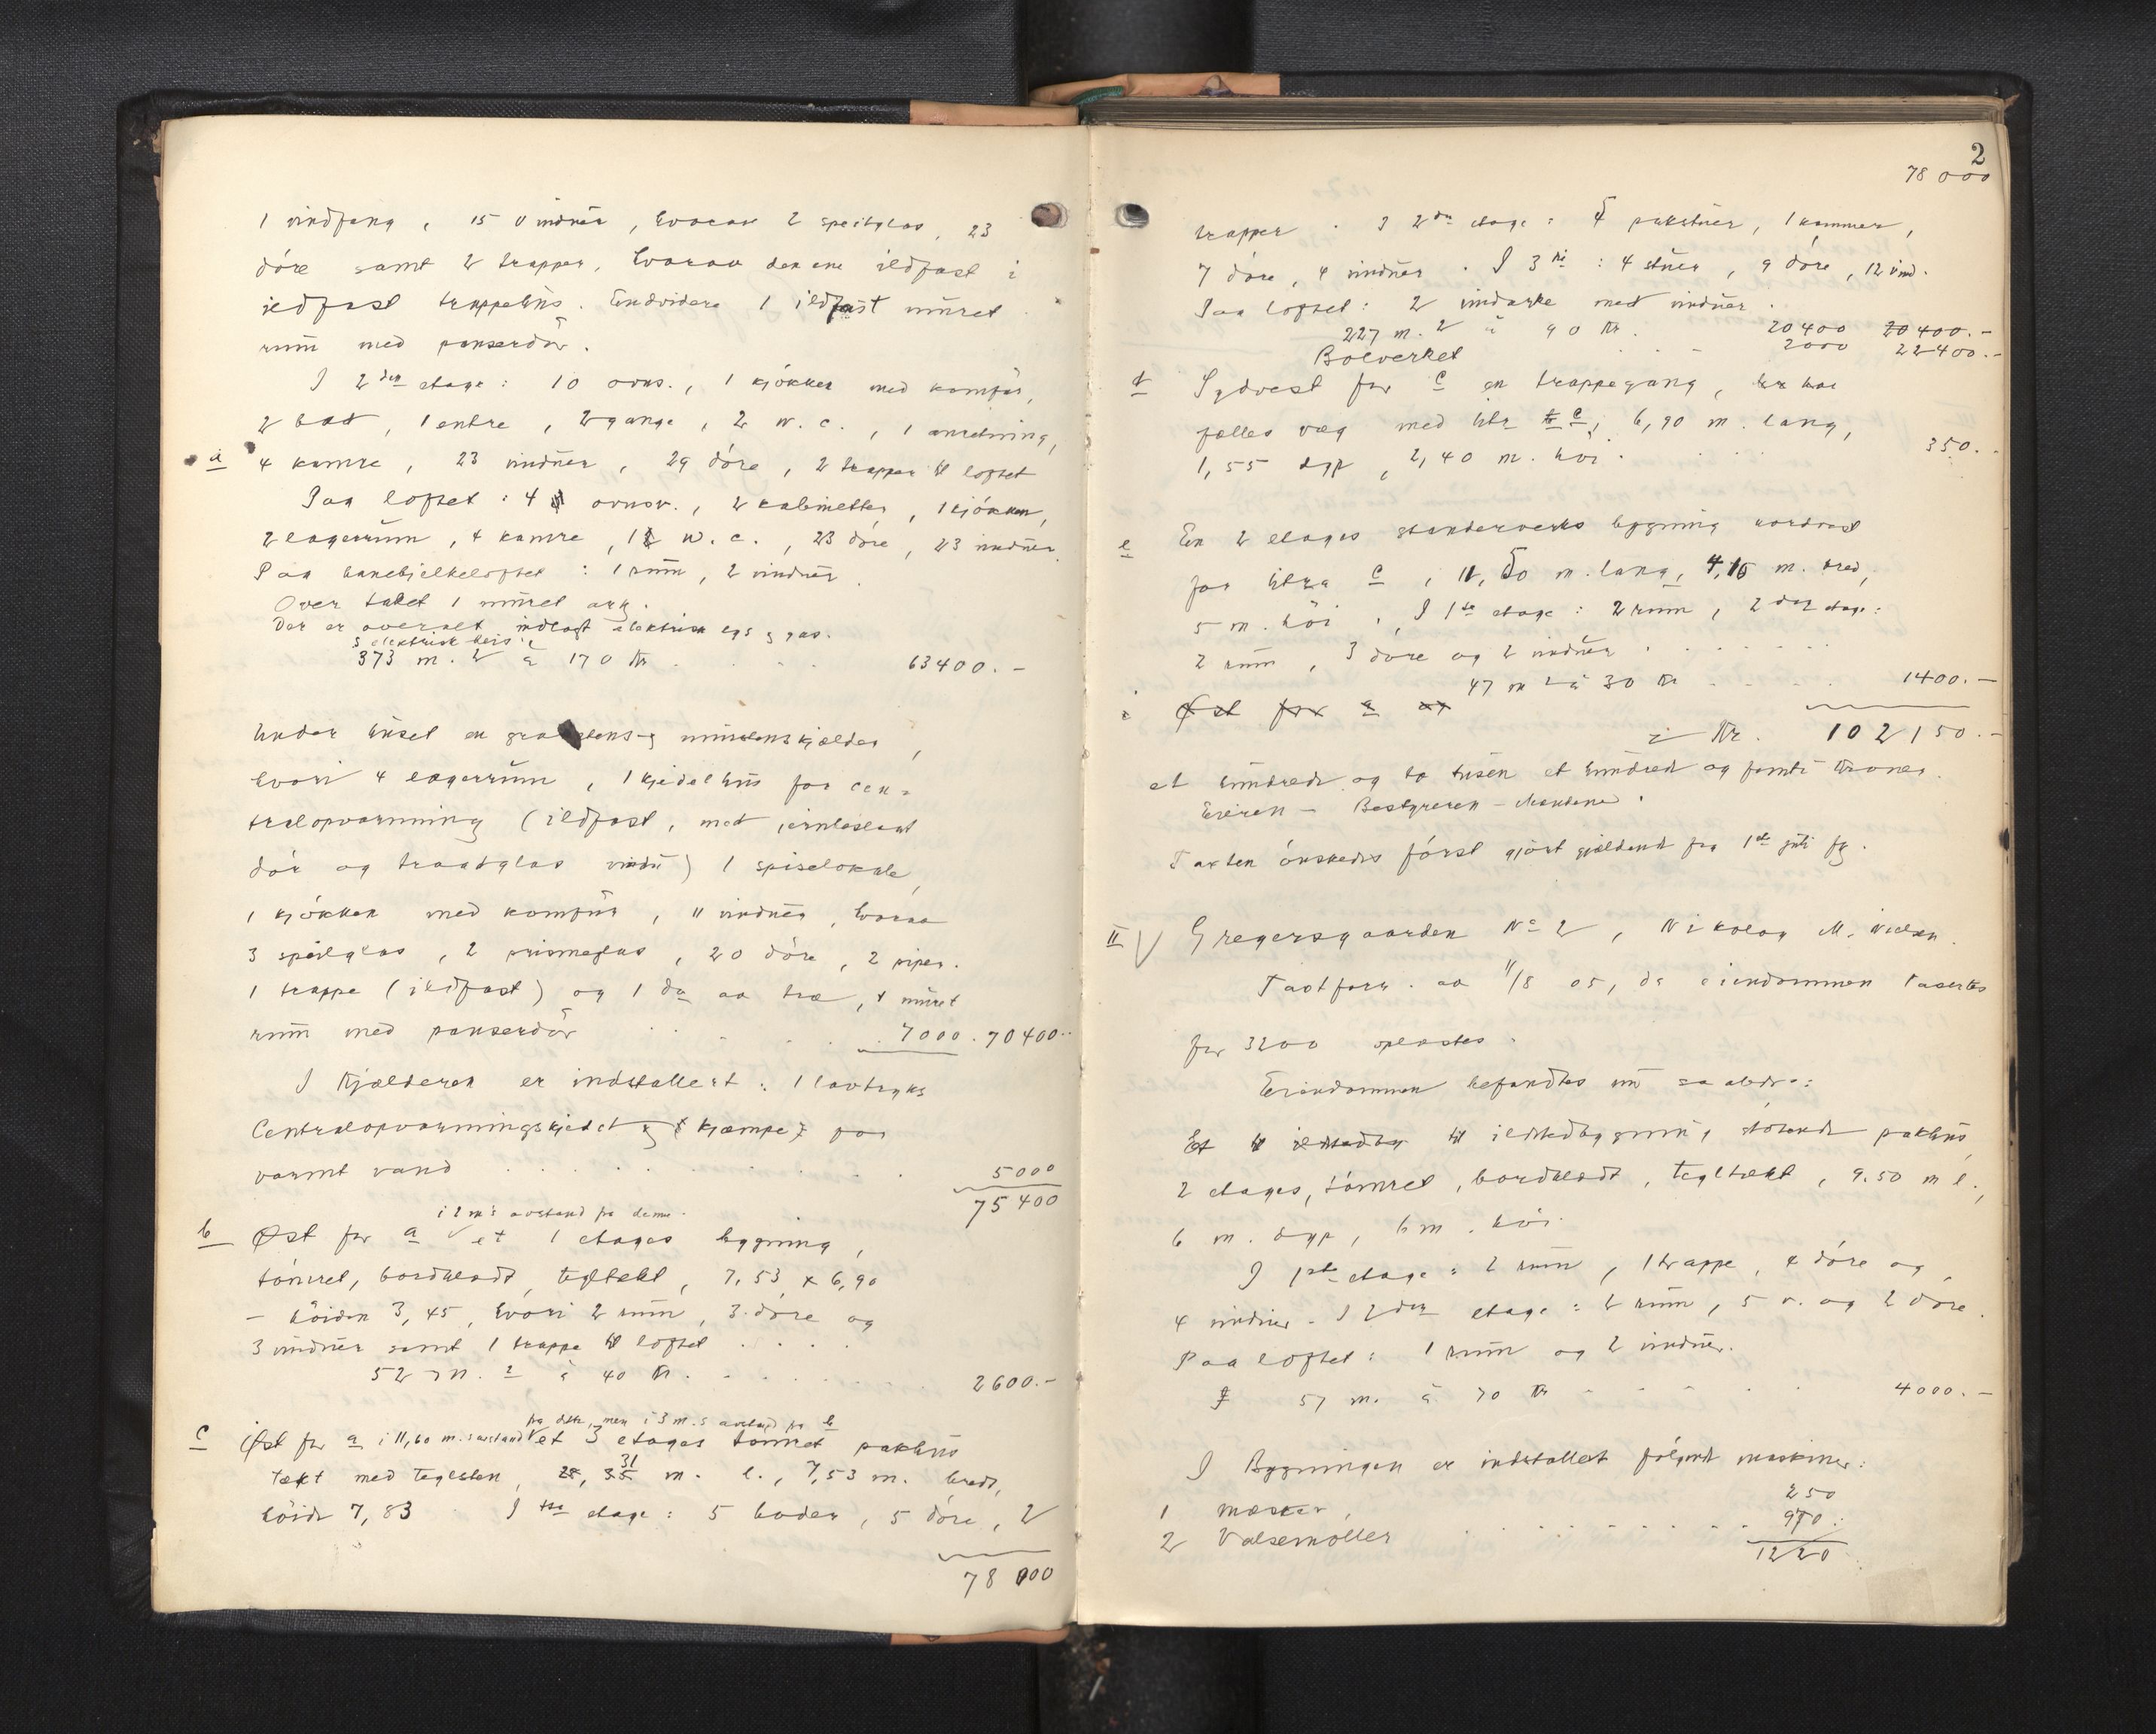 1 vindfang, 15 vinduer, hvorav 2 speilglas, 23
döre samt 2 trapper, hvorav den ene ildfast i
ildfast trappehus. Endvidere 1 ildfast muret
rum med panserdör.
I 2den etage: 10 ovns., 1 kjökken med komfur,
2 bad, 1 entre, 2 gange, 2 w.c., 1 anretning,
a 4 kamre, 23 vinduer, 29 döre, 2 trapper til loftet
Paa loftet: 4 ovnsv., 2 kabinetter, 1 kjökken,
2 lagerrum, 4 kamre, 1 w.c., 23 döre, 23 vinduer.
Paa hanebjelkeloftet: 1 rum, 2 vinduer.
Over taket 1 muret ark.
Der er overalt indlagt elektrisk lys og gas.
og elektrisk heis.
373 m.2 à 170 Kr . . . . 63400.-
Under huset en graastens- og murstenskjelder,
hvori 4 lagerrum, 1 kjedelhus for cen-
tralopvarmning (ildfast, med jernbeslaat
dör og traadglas vindu) 1 spiselokale,
1 kjökken med komfur, 11 vinduer, hvorav
3 speilglas, 2 prismeglas, 20 döre, 2 piper.
1 trappe (ildfast) og 1 do av træ, 1 muret
rum med panserdör . . . . 7000. 70400.-
I Kjælderen er indstallert: 1 lavtryks
Centralopvarmningskjedel og 1 kjæmpe for
varmt vand . . . . 5000
75400
i 2 m's avstand fra denne.
b Öst for a et 1 etages bygning,
tömret, bordklædt, tegltekt, 7,53 x 6,90
- höiden 3,45, hvori 2 rum, 3 döre og
3 vinduer samt 1 trappe til loftet . . . .
52 m.2 à 40 Kr. . . . . 2600.-
fra dette, men i 3 m.s avstand fra b
c Öst for a i 11,60 m.s avstand et 3 etages tömret pakhus
31
tækt med teglsten, 25, 35 m. l., 7,53 m. bredt,
höide 7,83. I 1ste etage: 5 boder, 5 döre, 2
78 000
2
78 000
trapper. I 2den etage: 5 pakstuer, 1 kammer,
7 döre, 4 vinduer. I 3die: 4 stuer, 9 döre, 12 vind.
Paa loftet: 2 vindarke med vinduer.
227 m.2 à 90 Kr. 20400 20400.-
Bolverket . . . 2000 22400.-
d Sydvest for c en trappegang, har
fælles væg med litr c, 6,90 m. lang,
1,55 dyp, 2,40 m. höi. . . . 350.-
e En 2 etages standerverks bygning nordvest
for litra c, 11,50 m. lang, 4,15 m. bred,
5 m. höi. I 1ste etage: 2 rum, 2den etage:
2 rum, 3 döre og 2 vinduer . . . . . .
47 m2 à 30 Kr . . . . 1400.-
Öst for a
Kr. 102150.-
et hundrede og to tusen et hundrede og femti kroner.
Eieren - Bestyreren - Mændene.
Taxten önskedes först gjort gjældende fra 1ste juli fg.
II V Gregersgaarden No 2, Nikolay M. Nielsen.
Taxtforr. av 11/8 05, da eiendommen taxertes
for 3200 oplæstes.
Eiendommen befandtes nu saaledes:
Et til ildstedbygning stötende pakhus
2 etages, tömret, bordklædt, tegltækt, 9.50 m l.,
6 m. dyp, 6 m. höi.
I 1ste etage: 2 rum, 1 trappe, 4 döre og
4 vinduer. I 2den etage: 2 rum, 5 v. og 2 döre.
Paa loftet: 1 rum og 2 vinduer.
57 m. à 70 Kr . . . . . 4000.-
I Bygningen er indstallert fölgende maskiner:
1 mæsker, 250
2 Valsemöller . . . . . . . . 970.
1220